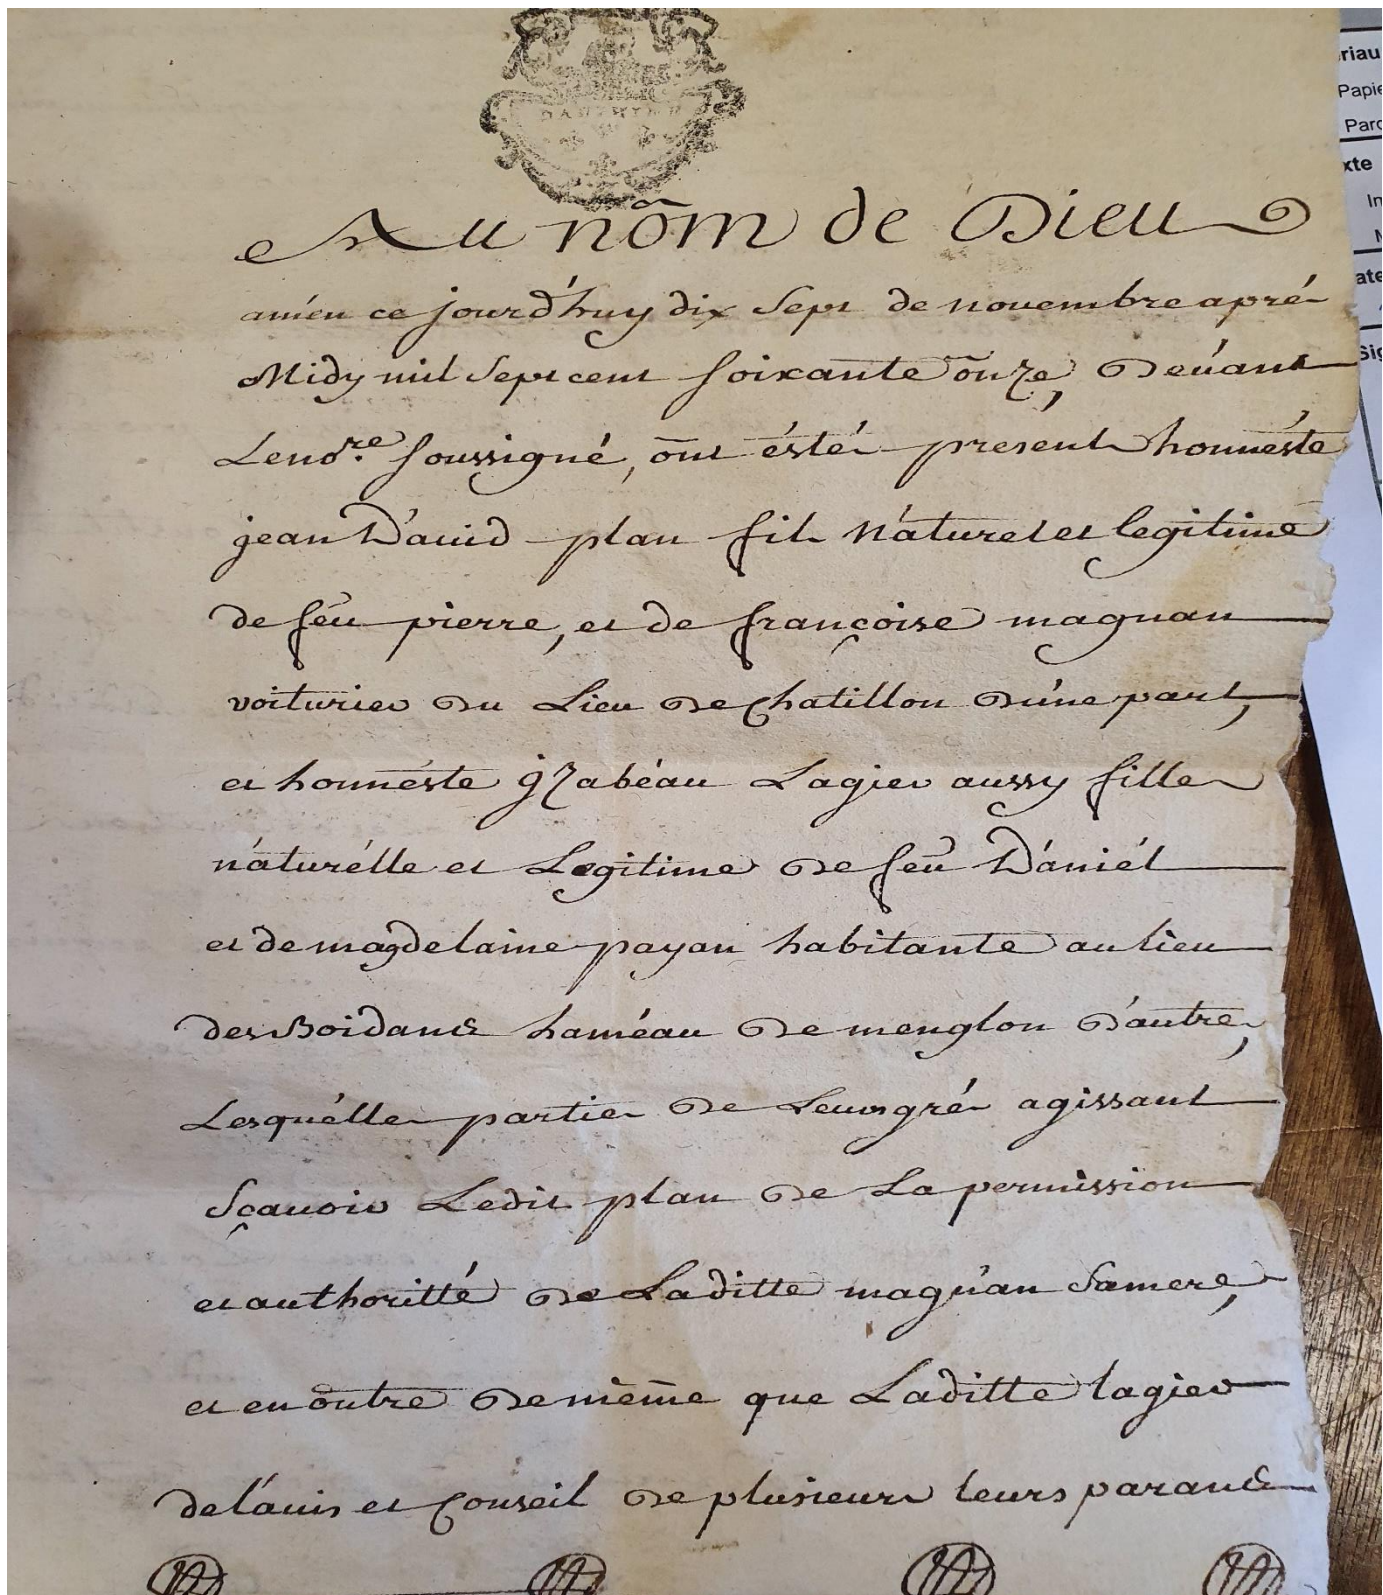 DAUPHINE
Au nom de Dieu
amen ce jourd'huy dix Sept de novembre aprés
Midy mil Sept cent soixante onze, Devant
Le no.re soussigné, ont ésté present honnéste
jean David plan fils náturel et legitime
de feu pierre, et de françoise magnan
voiturier Du Lieu De Chatillon D'une part,
et honnéste yzabéau Lagier aussy fille
náturélle et Legitime De feu Dániél
et de magdelaine payan habitante au lieu
des Boidans haméau De menglon D'autre,
Lesquélles parties De Leurs gré agissant
Sçavoir Ledit plan De La permission
et authoritté De Laditte magnan Sa mere,
et en outre De méme que Laditte lagier
de l'avis et Conseil De plusieurs leurs parans
riau
Papie
Parc
xte
In
ate
Sig